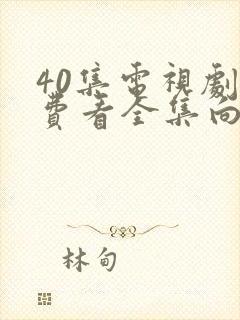 40集電視劇
費看全集向
林甸